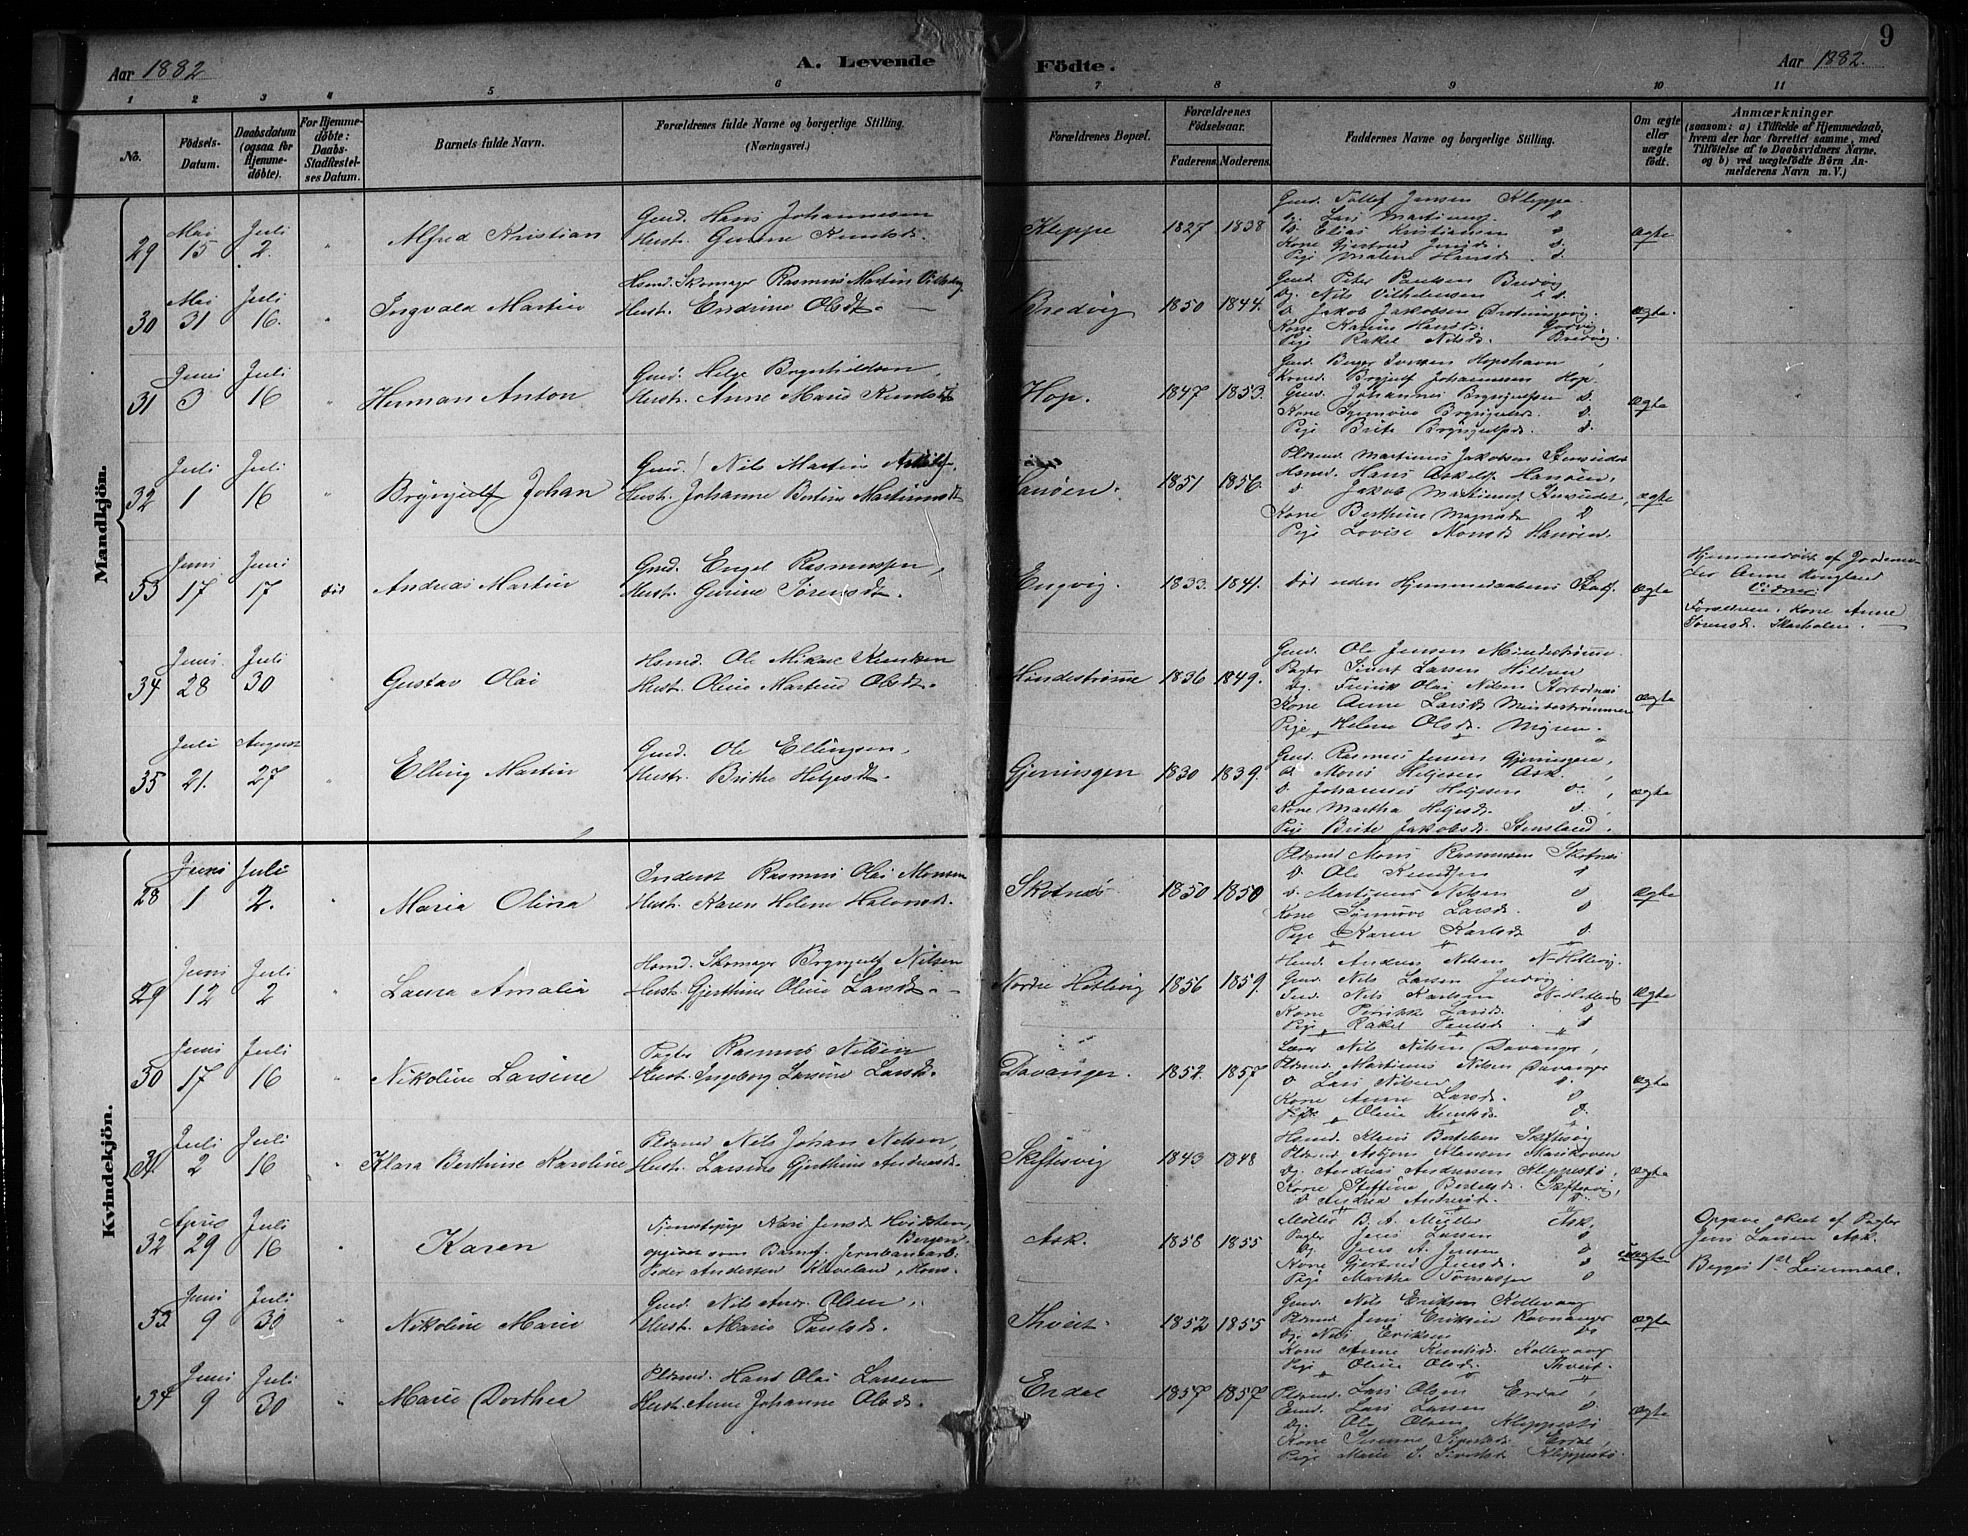 9
Aar 1882
A. Levende Födte.
Aar 1882.
1 2 3 4 5 6 7 8 9 10 11
No.
Födsels-Datum.
Daabsdatum (ogsaa for Hjemme-döbte).
For Hjemme-döbte: Daabs-Stadfæstel-ses Datum.
Barnets fulde Navn.
Forældrenes fulde Navne og borgerlige Stilling. (Næringsvei.)
Forældrenes Bopæl.
Forældrenes Födselsaar.
Faderens. Moderens.
Faddernes Navne og borgerlige Stilling.
Om ægte eller uægte födt.
Anmærkninger
(saasom: a) i Tilfælde af Hjemmedaab, hvem der har forrettet samme, med Tilföielse af to Daabsvidners Navne, og b) ved uægtefödte Börn An-melderens Navn m. V.)
Mandkjön.
29 Mai 15 Juli 2. " Alfred Kristian
Gmd. Hans Johannesen
Hustr. Gurine Knutsd.
Kleppe 1827 1838
Gmd. Tollef Jensen Kleppe.
Dg. Lars Martinus. d
D. Elias Kristiansen d
Kone Gjertrud Jensd. d.
Pige Malene Hansd. d.
ægte "
30 Mai 31 Juli 16. " Ingvald Martin
Hsmd. Skomager Rasmus Martin
Hustr. Endrine Olsdt.
Bredvig 1850 1844.
Gmd. Peter Paulsen Bredvig
Dg. Nils Vilhelmsen d.
D Jakob Jakobsen
Kone Karine Hansd. Godvig.
Pige Rakel Nilsd. Bredvig.
ægte. "
31 Juni 3 Juli 16 " Herman Anton
Gmd. Helge Brynhildsen,
Hustr. Anne Marie Knutsdt
Hop. 1847 1853.
Gmd. Hopshavn,
Johannesen Hop.
Gmd. Johannes Brynjulfsen d.
Kone Synnöve Brynjulfsd. d.
Pige Brite Brynjulfsd. d.
ægte "
32 Juli 1 Juli 16 " Brynjulf Johan
Gmd. Nils Martin
Hustr. Johanne Bertine Martinusdt
Hanöen. 1851 1856.
Pldsmd Martinus Jakobsen
Hsmd. Hans Askelf. Hanöen,
d Jakob Martinus.
Kone Berthine Magnusd d
Pige Lovise Monsd. Hanöen.
ægte
33 Juni 17 Juni 17 död Andreas Martin
Gmd. Engel Rasmussen,
Hustr. Gurine Sörensdt.
Engvig. 1833. 1841.
Död uden Hjemmedaabens Stadf.
ægte
Hjemmedöbt af Jordemo-
der Anne
Vidner:
Forældrene, Kone Anne
Sörensd. Skarholm.
34 Juni. 28 Juli 30 " Gustav Olai
Hsmd. Ole Mikael Knudsen
Hustr. Oline Martine Olsdt.
1836 1849.
Gmd. Ole Jensen
Pagter Sivert Larsen Hilleren
Dg. Fredrik Olai Nilsen
Kone Anne Larsd.
Pige Helene Olsd.
ægte
35 Juli 21. August 27 " Elling Martin
Gmd. Ole Ellingsen,
Hustr. Brithe Helgesdt.
Gjerningen 1830 1839.
Gmd. Rasmus Jensen Gjerningen,
d Mons Helgesen Ask.
d Johannes Helgesen d. ,
Kone Martha Helgesd. d.
Pige Brite Jakobsd. Stensland.
ægte
Kvindekjön.
28 Juni 1 Juli 2. " Maria Olina
Inderst Rasmus Olai Monsen
Hustr. Karen Helene Halvorsd.
Skotnæs 1850 1850
Pldsmd Mons Rasmussen Skotnæs
D Ole Knudsen d
D. Martinus Nilsen d
Kone Synnöve Larsd. d
Pige Karen Karlsd d.
ægte
29 Juni 12 Juli 2 " Laura Amalia
Hsmd. Skomager Brynjulf Nilsen
Hustr. Gjerthine Oline Larsdt.
Nordre Hetlevig 1856 1859.
Hsmd. Andreas Nilsen N-Hetlevig.
Gmd. Nils Larsen
Ind. Nils Karlsen N-Hetlevig
Kone Larsd. d
Pige Rakel Paulsd d
ægte
30 Juni 17 Juli 16 " Nikoline Larsine
Pagter Rasmus Nilsen
Hustr. Ingeborg Larsine Larsdt.
Davanger. 1852. 1857
Lærer Nils Nilsen Davanger,
Pldsmd. Martinus Nilsen Davanger
D Lars Nilsen d.
Kone Anne Larsd. d
Pige Oline Knutsd. d.
ægte
31. Juli 2 Juli 16 " Klara Berthine Karoline
Pldsmd Nils Johan Nilsen,
Hustr. Larsine Gjerthine Andreasd.
Skiftesvig 1843 1848
Hsmd. Klaus Bertelsen Skiftesvig
Pldsmd
Dg. Andreas Andersen Kleppestö,
Kone Steffine Bertelsd. Skiftesvig,
D Andrea Andreasd. d.
ægte
32 April 29 Juli 16 " Karen
Tjenestepige Kari Jensd.
Bergen,
opgiver som Barnef. Jernbanearb.
Peder Andersen
Ask. 1858 1855
Möller B. A. Müller Ask,
Pagter Jens Larsen d
Dg. Jens A. Jensen d
Kone Gjertrud Jensd. d
Pige Martha d
uægte
Opgave skeet af Pagter
Jens Larsen Ask.
Begges 1ste Leiermaal.
33 Juni 9 Juli 30 " Nikoline Marie
Gmd. Nils Andr. Olsen,
Hustr. Marie Paulsd.
Thveit 1852 1855
Gmd. Nils Eriksen Kollevaag
Pldsmd Jens Eriksen Ravnanger
Dg. Nils Eriksen do
Kone Anne Knutsd. Kollevaag
Pige Oline Olsd. Thveit.
ægte
34 Juni 9 Juli 30 " Marie Dorthea
Pldsmd. Hans Olai Larsen
Hustr. Anne Johanne Olsd.
Erdal 1857 1857
Pldsmd. Lars Olsen Erdal,
Gmd. Lars Larsen d.
Dg. Ole Olsen Kleppestö
Kone Sivertsd. Erdal,
Pige Marie S. Sivertsd Kleppestö.
ægte